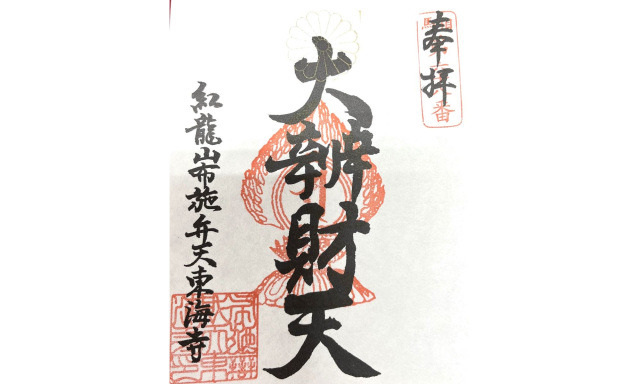 奉拝
大辨財天
紅龍山布施弁天東海寺